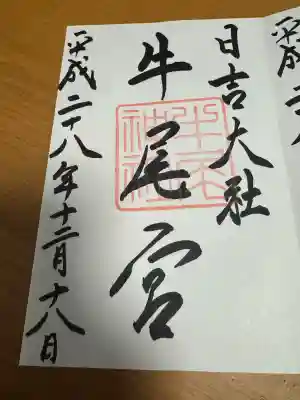 日吉大社
牛尾宮
平成二十八年十二月十八日